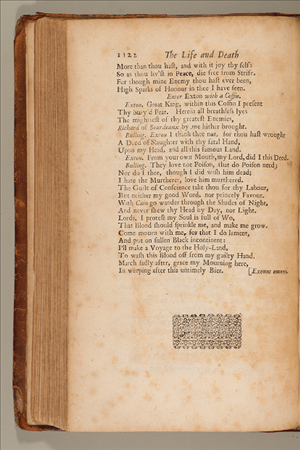 1122 The Life and Death
More than thou hast, and with it joy thy self:
So as thou liv'st in Peace, die free from Strife.
For though mine Enemy thou hast ever been,
High Sparks of Honour in thee I have seen.
Enter Exton with a Coffin.
Exton. Great King, within this Coffin I present
Thy bury'd Fear. Herein all breathless lyes
The mightiest of thy greatest Enemies,
Richard of Bourdeaux by me hither brought.
Bulling. Exton I thank thee not, for thou hast wrought
A Deed of Slaughter with thy fatal Hand,
Upon my Head, and all this famous Land.
Exton. From your own Mouth, my Lord, did I this Deed.
Bulling. They love not Poison, that do Poison need;
Nor do I thee, though I did wish him dead;
I hate the Murtherer, love him murthered.
The Guilt of Conscience take thou for thy Labour,
But neither my good Word, nor princely Favour.
With Cain go wander through the Shades of Night,
And never shew thy Head by Day, nor Light.
Lords, I protest my Soul is full of Wo,
That Blood should sprinkle me, and make me grow.
Come mourn with me, for that I do lament,
And put on sullen Black incontinent:
I'll make a Voyage to the Holy-Land,
To wash this Blood off from my guilty Hand.
March sadly after, grace my Mourning here,
In weeping after this untimely Bier. [Exeunt omnes.